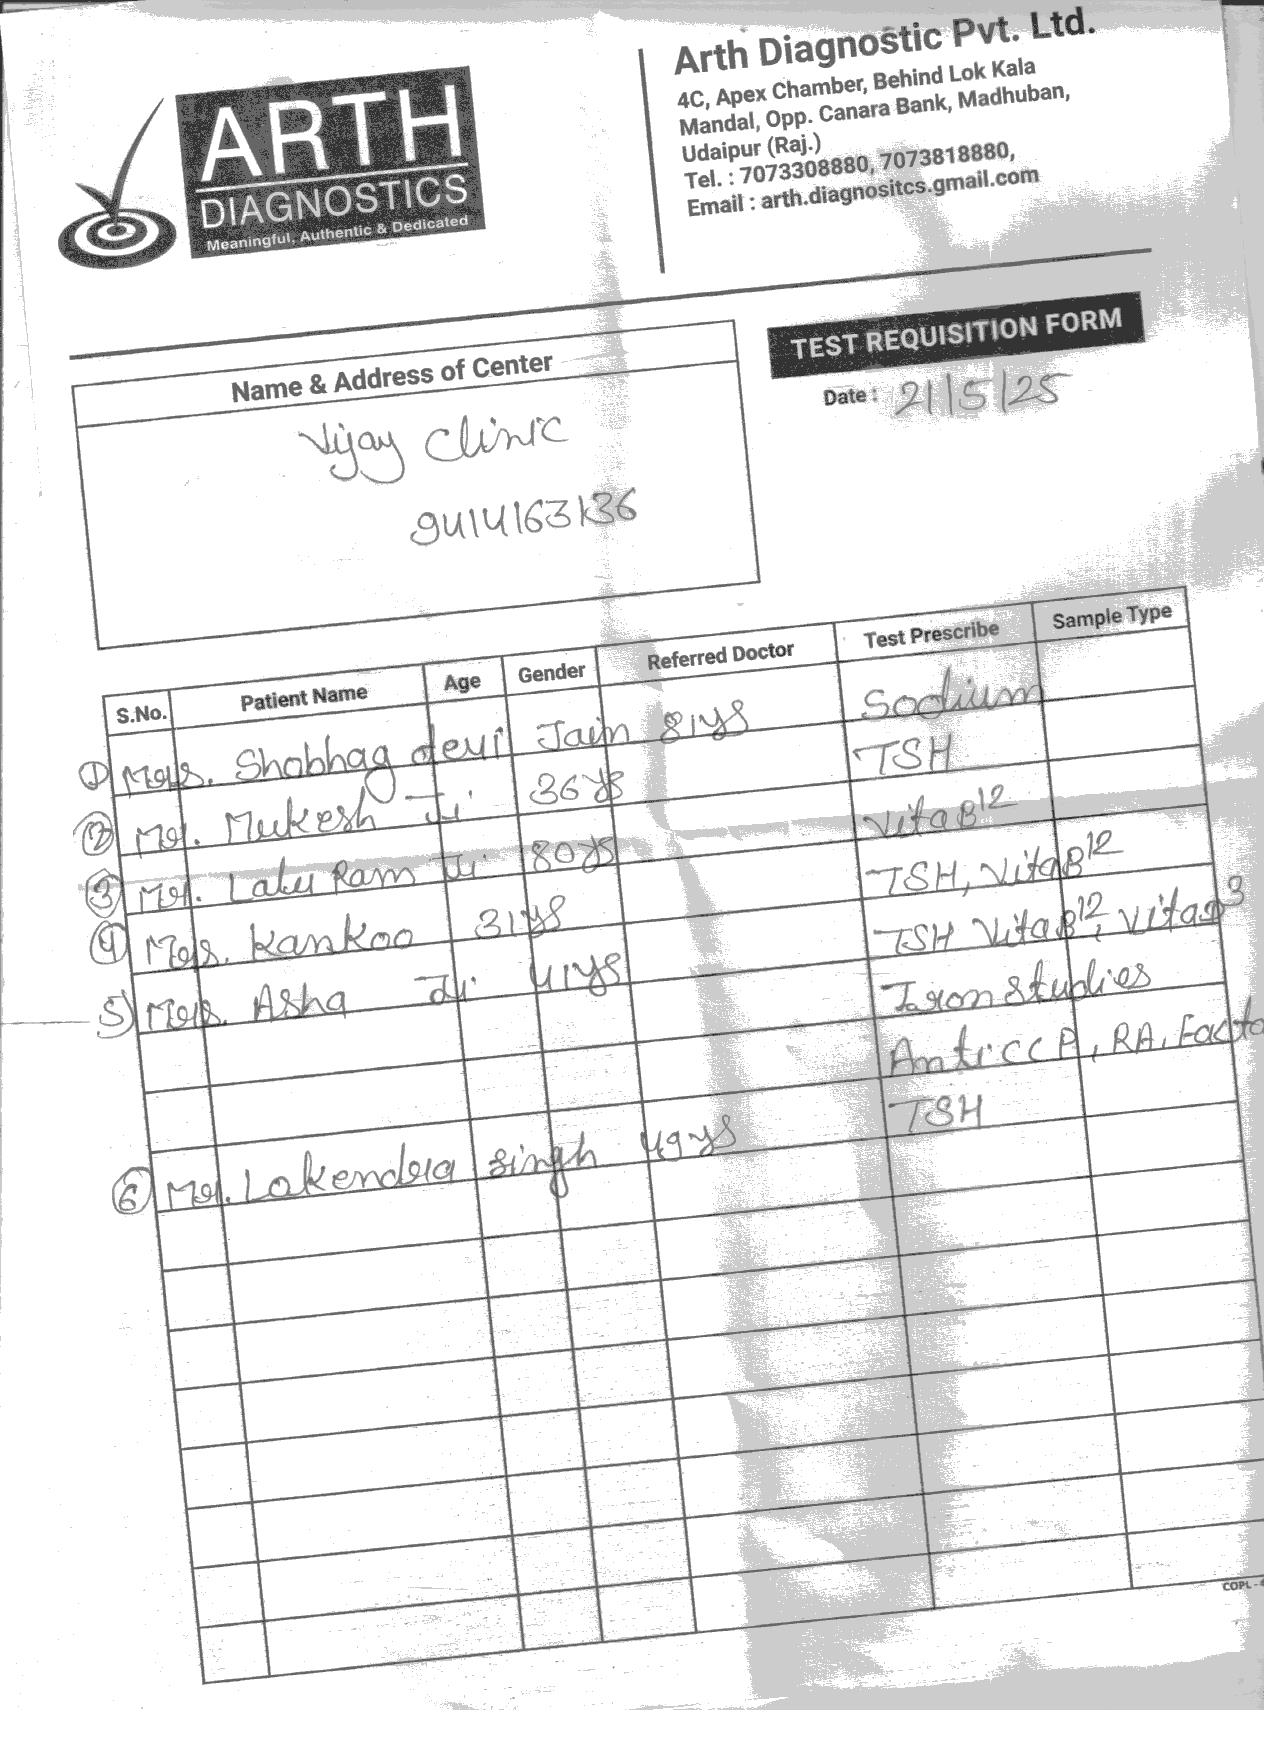 ARTH
DIAGNOSTICS
Meaningful, Authentic & Dedicated
Arth Diagnostic Pvt. Ltd.
4C, Apex Chamber, Behind Lok Kala
Mandal, Opp. Canara Bank, Madhuban,
Udaipur (Raj.)
Tel. : 7073308880, 7073818880,
Email : arth.diagnositcs.gmail.com
TEST REQUISITION FORM
Date : 21/5/25
Name & Address of Center
Vijay Clinic
9414163136
S.No. Patient Name Age Gender Referred Doctor Test Prescribe Sample Type
1 Mrs. Shobhag devi Jain 81ys Sodium
2 Mr. Mukesh Ji 36ys TSH
3 Mr. Lalu Ram Ji 80ys Vita B12
4 Mrs. Kankoo 31ys TSH, Vita B12
5) Mrs. Asha Ji 41ys TSH Vita B12, Vita D3
Iron Studies
Anti CCP, RA, Facto
6 Mr. Lokendra Singh 49ys TSH
COPL -